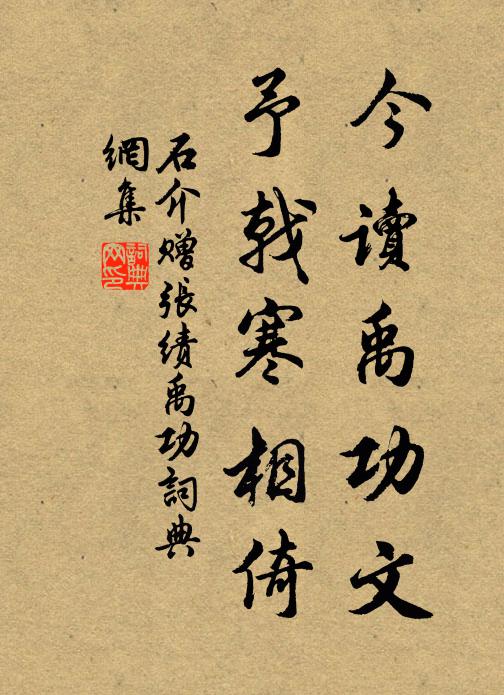 今讀禹功文
予戟寒相倚
石介贈張績禹功詞典
網集
詞典
网印